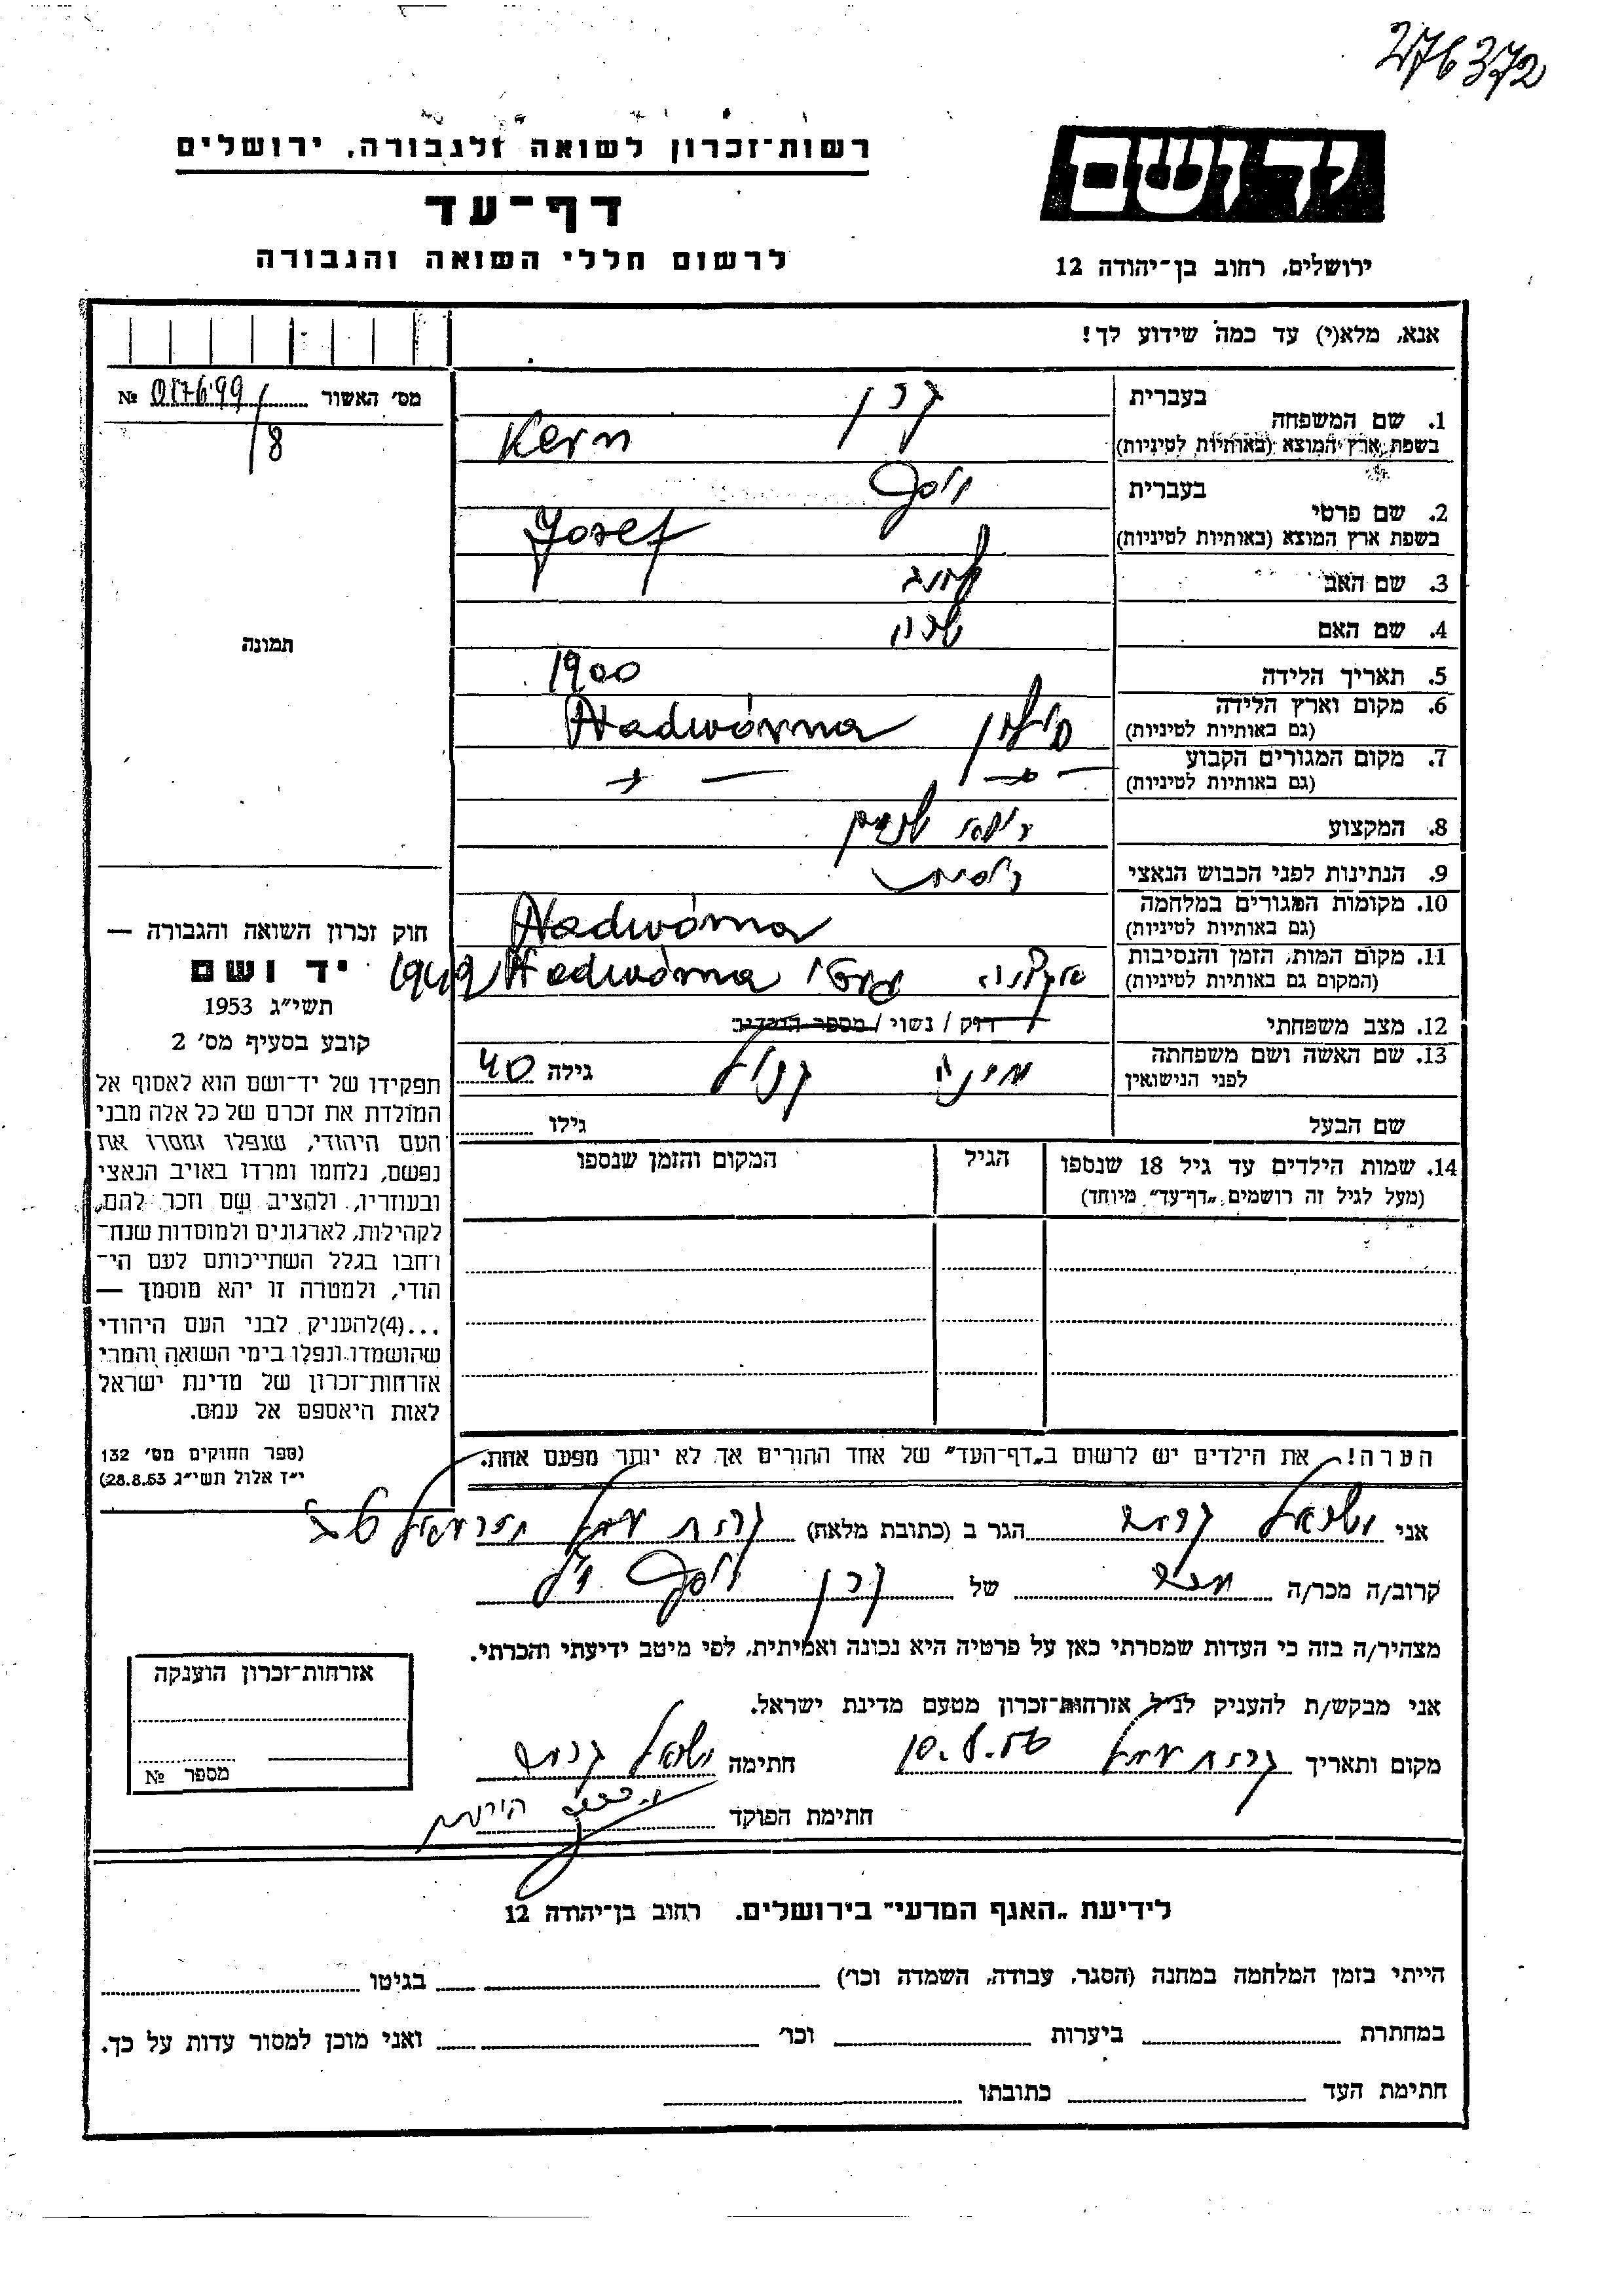 276372
רשות־זכרון לשואה ולגבורה, ירושלים
דף־עד
לרשום חללי השואה והגבורה
יד ושם
ירושלים, רחוב בן־יהודה 12
אנא, מלא(י) עד כמה שידוע לך!
מס' האשור № 017699/8
תמונה
1. שם המשפחה בעברית קרן
בשפת ארץ המוצא (באותיות לטיניות) Kern
2. שם פרטי בעברית יוסף
בשפת ארץ המוצא (באותיות לטיניות) Josef
3. שם האב
4. שם האם שרה
5. תאריך הלידה 1900
6. מקום וארץ הלידה (גם באותיות לטיניות) פולין Nadwórna
7. מקום המגורים הקבוע (גם באותיות לטיניות) — " — — " —
8. המקצוע
9. הנתינות לפני הכבוש הנאצי
10. מקומות המגורים במלחמה (גם באותיות לטיניות) Nadwórna
11. מקום המות, הזמן והנסיבות (המקום גם באותיות לטיניות) Nadwórna 1942
12. מצב משפחתי רווק / נשוי / מספר הילדים
13. שם האשה ושם משפחתה לפני הנישואין גילה 40
שם הבעל גילו
14. שמות הילדים עד גיל 18 שנספו (מעל לגיל זה רושמים „דף־עד” מיוחד)
הגיל
המקום והזמן שנספו
הערה! את הילדים יש לרשום ב„דף־העד” של אחד ההורים אך לא יותר מפעם אחת.
חוק זכרון השואה והגבורה —
יד ושם
תשי״ג 1953
קובע בסעיף מס' 2
תפקידו של יד־ושם הוא לאסוף אל
המולדת את זכרם של כל אלה מבני
העם היהודי, שנפלו ומסרו את
נפשם, נלחמו ומרדו באויב הנאצי
ובעוזריו, ולהציב שם וזכר להם,
לקהילות, לארגונים ולמוסדות שנח־
רחבו בגלל השתייכותם לעם הי־
הודי, ולמטרה זו יהא מוסמך —
...(4)להעניק לבני העם היהודי
שהושמדו ונפלו בימי השואה והמרי
אזרחות־זכרון של מדינת ישראל
לאות היאספם אל עמם.
(ספר החוקים מס' 132
י״ז אלול תשי״ג 28.8.53)
אני ישראל הגר ב (כתובת מלאה) קרית עמל
קרוב/ה מכר/ה מכר של קרן יוסף ז״ל
מצהיר/ה בזה כי העדות שמסרתי כאן על פרטיה היא נכונה ואמיתית, לפי מיטב ידיעתי והכרתי.
אני מבקש/ת להעניק לנ״ל אזרחות־זכרון מטעם מדינת ישראל.
מקום ותאריך קרית עמל 10.8.56 חתימה ישראל
חתימת הפוקד
אזרחות־זכרון הוענקה
מספר №
לידיעת „האגף המדעי” בירושלים. רחוב בן־יהודה 12
הייתי בזמן המלחמה במחנה (הסגר, עבודה, השמדה וכו') בגיטו
במחתרת ביערות וכו' ואני מוכן למסור עדות על כך.
חתימת העד כתובתו